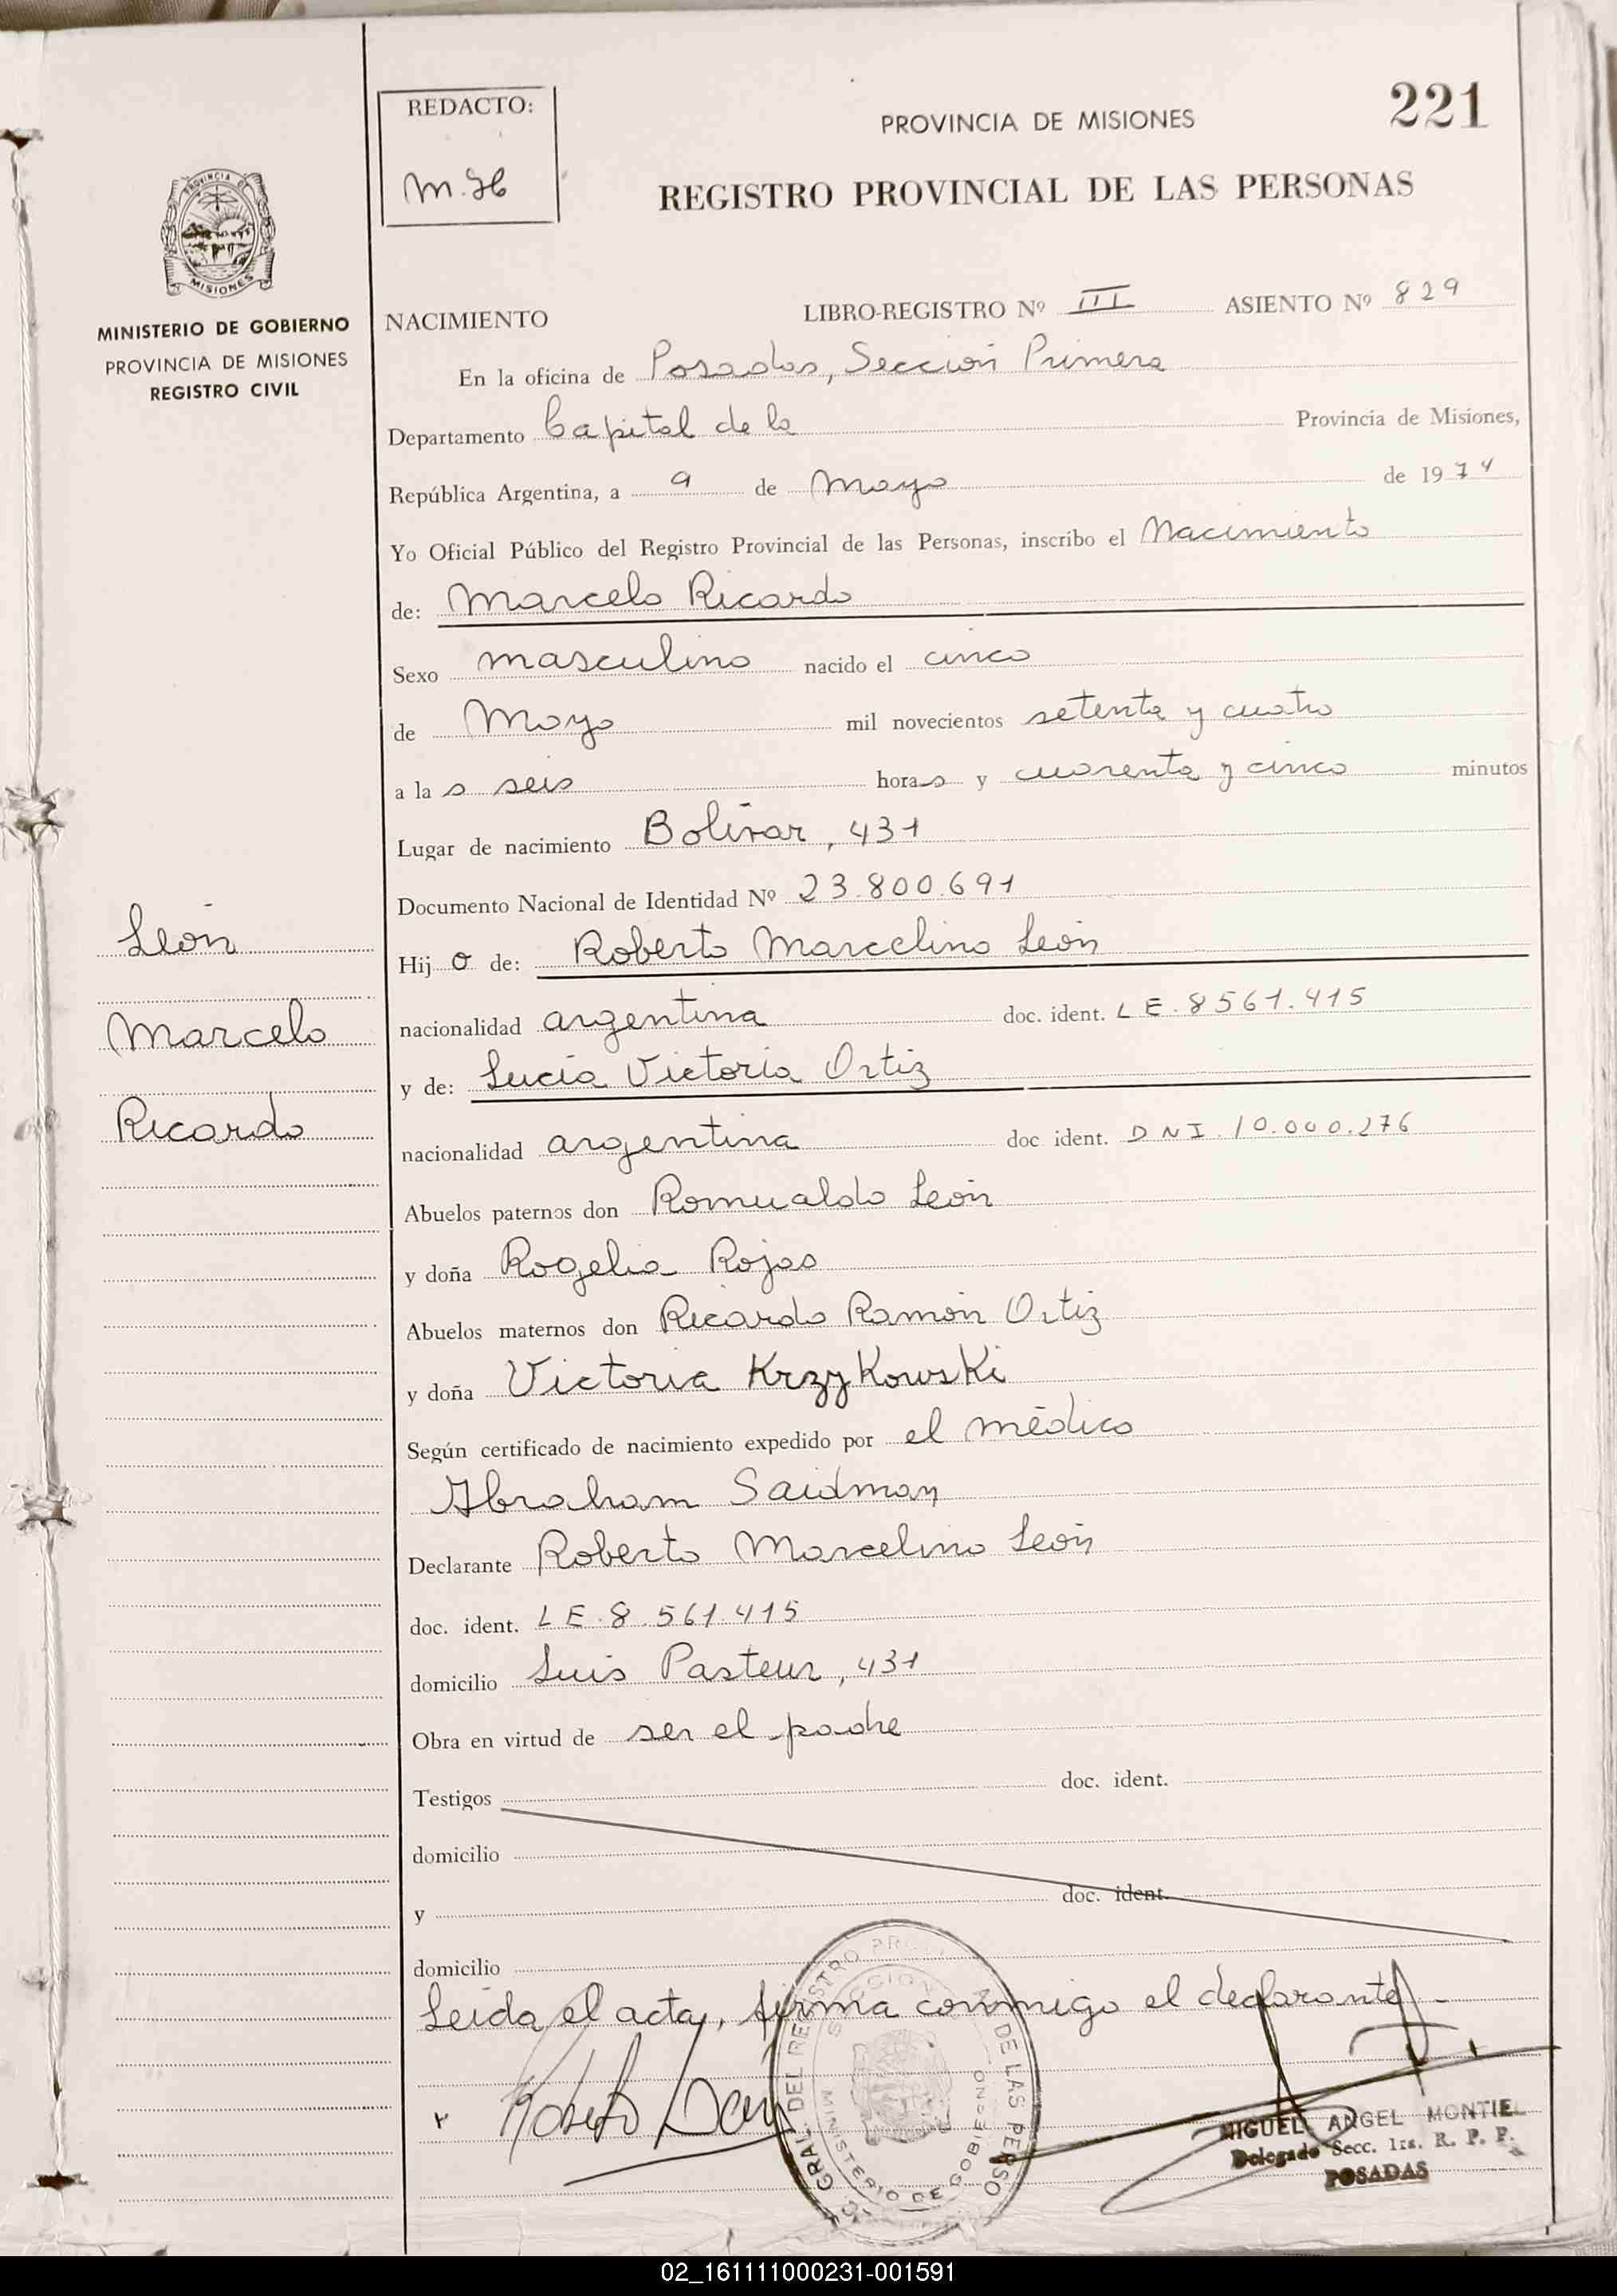 REDACTO:
M.H
PROVINCIA DE MISIONES
221
REGISTRO PROVINCIAL DE LAS PERSONAS
PROVINCIA DE
MISIONES
MINISTERIO DE GOBIERNO
PROVINCIA DE MISIONES
REGISTRO CIVIL
NACIMIENTO LIBRO-REGISTRO Nº III ASIENTO Nº 829
En la oficina de Posadas, Sección Primera
Departamento Capital de la Provincia de Misiones,
República Argentina, a 9 de Mayo de 1974
Yo Oficial Público del Registro Provincial de las Personas, inscribo el Nacimiento
de: Marcelo Ricardo
Sexo masculino nacido el cinco
de Mayo mil novecientos setenta y cuatro
a la s seis horas y cuarenta y cinco minutos
Lugar de nacimiento Bolívar, 431
Documento Nacional de Identidad Nº 23.800.691
León
Marcelo
Ricardo
Hijo de: Roberto Marcelino León
nacionalidad argentina doc. ident. LE.8561.415
y de: Lucía Victoria Ortiz
nacionalidad argentina doc ident. DNI.10.000.276
Abuelos paternos don Romualdo León
y doña Rogelia Rojas
Abuelos maternos don Ricardo Ramón Ortiz
y doña Victoria KrzyKowsKi
Según certificado de nacimiento expedido por el médico
Abraham Saidman
Declarante Roberto Marcelino León
doc. ident. LE.8.561.415
domicilio Luis Pasteur, 431
Obra en virtud de ser el padre
Testigos doc. ident.
domicilio
y doc. ident.
domicilio
Leída el acta, firma conmigo el declarante.-
Roberto León
GRAL. DEL REGISTRO DE LAS PERSO
MINISTERIO DE GOBIERNO
MIGUEL ANGEL MONTIEL
Delegado Secc. 1ra. R. P. P.
POSADAS
02_161111000231-001591